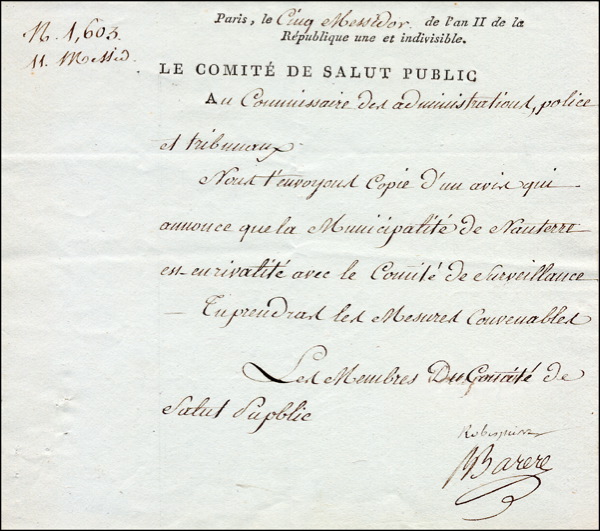 N. 1,603.
11. Messid.
Paris, le Cinq Messidor, de l'an II de la
République une et indivisible.
LE COMITÉ DE SALUT PUBLIC
Au Commissaire des administrations, police
et tribunaux
Nous t'envoyons Copie d'un avis qui
annonce que la Municipalité de Nanterre
est en rivalité avec le Comité de Surveillance
Tu prendras les Mesures Convenables
Les Membres Du Comité de
Salut Pupblic
Robespierre
BBarere